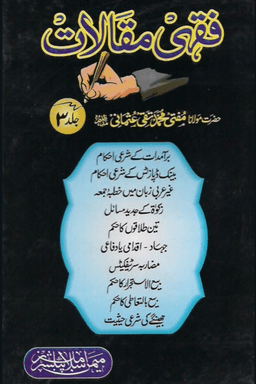 فقہی مقالات
حضرت مولانا مفتی محمد تقی عثمانی
جلد ۳
برآمدات کے شرعی احکام
بینک ڈپازٹس کے شرعی احکام
غیر عربی زبان میں خطبہ جمعہ
زکوٰۃ کے جدید مسائل
تین طلاقوں کا حکم
جہاد - اقدامی یا دفاعی
مضاربہ سرٹیفکیٹس
بیع الاستجرار کا حکم
بیع بالتعاطی کا حکم
جھینگے کی شرعی حیثیت
میمن اسلامک پبلشرز